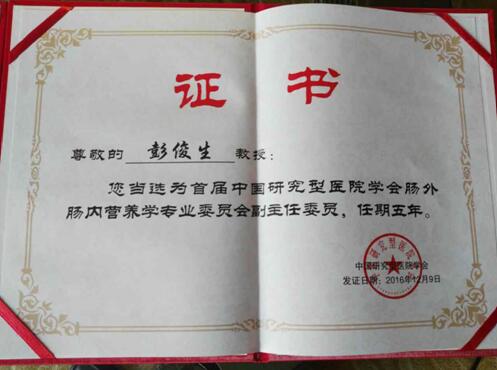 证 书
尊敬的 彭俊生 教授：
您当选为首届中国研究型医院学会肠外
肠内营养学专业委员会副主任委员，任期五年。
中国研究型医院学会
发证日期：2016年12月9日